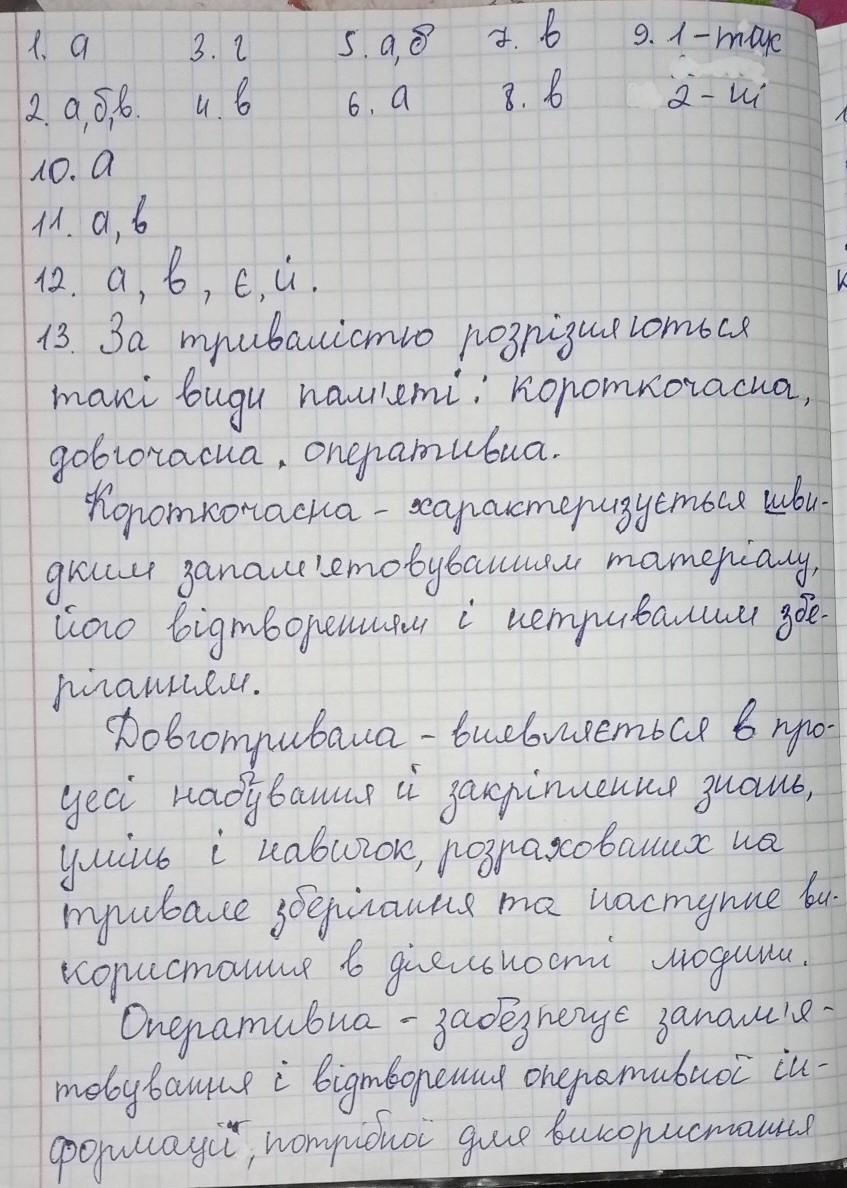 1. а 3. г 5. а,б 7. в 9. 1 - так
2. а,б,в. 4. в 6. а 8. в 2 - ні
10. а
11. а, в
12. а, в, є, й.
13. За тривалістю розрізняються
такі види пам'яті: короткочасна,
довгочасна, оперативна.
Короткочасна - характеризується шви-
дким запам'ятовуванням татеріалу,
його відтворенням і нетривалим збе-
ріганням.
Довготривала - виявляється в про-
цесі набування й закріплення знань,
умінь і навичок, розрахованих на
тривале зберігання та наступне ви-
користання в діяльності людини.
Оперативна - забезпечує запам'я-
товування і відтворення оперативної ін-
формації, потрібної для використання